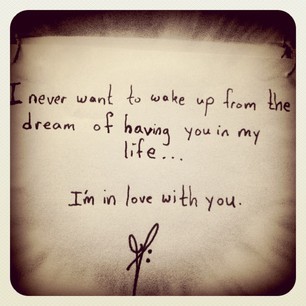 I never want to wake up from the
dream of having you in my
life...
I'm in love with you.